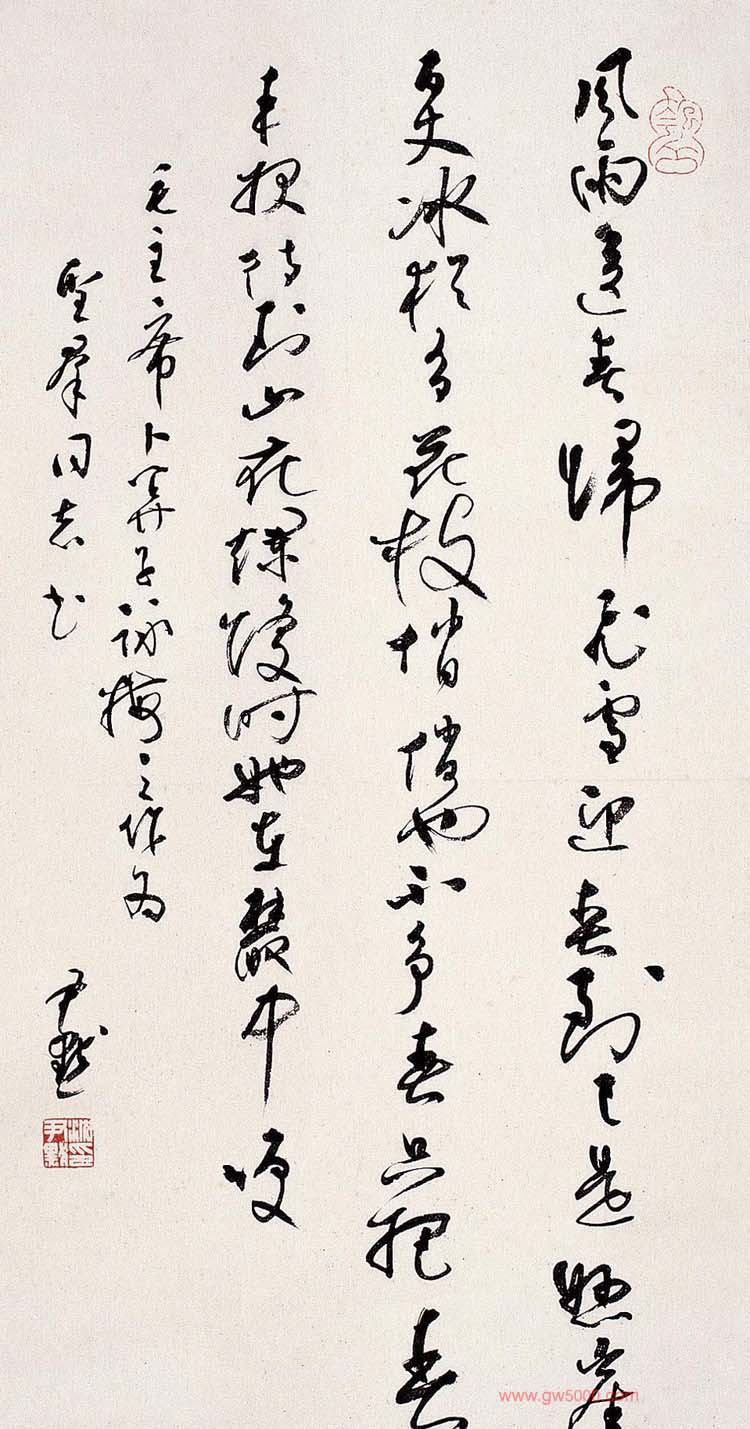 風雨送春歸飛雪迎春到已是懸崖
百丈冰猶有花枝俏俏也不爭春只把春
来報待到山花爛漫時她在叢中咲
毛主席卜算子詠梅之作为
聖羣同志书
尹默
沈尹默印
www.gw5000.com